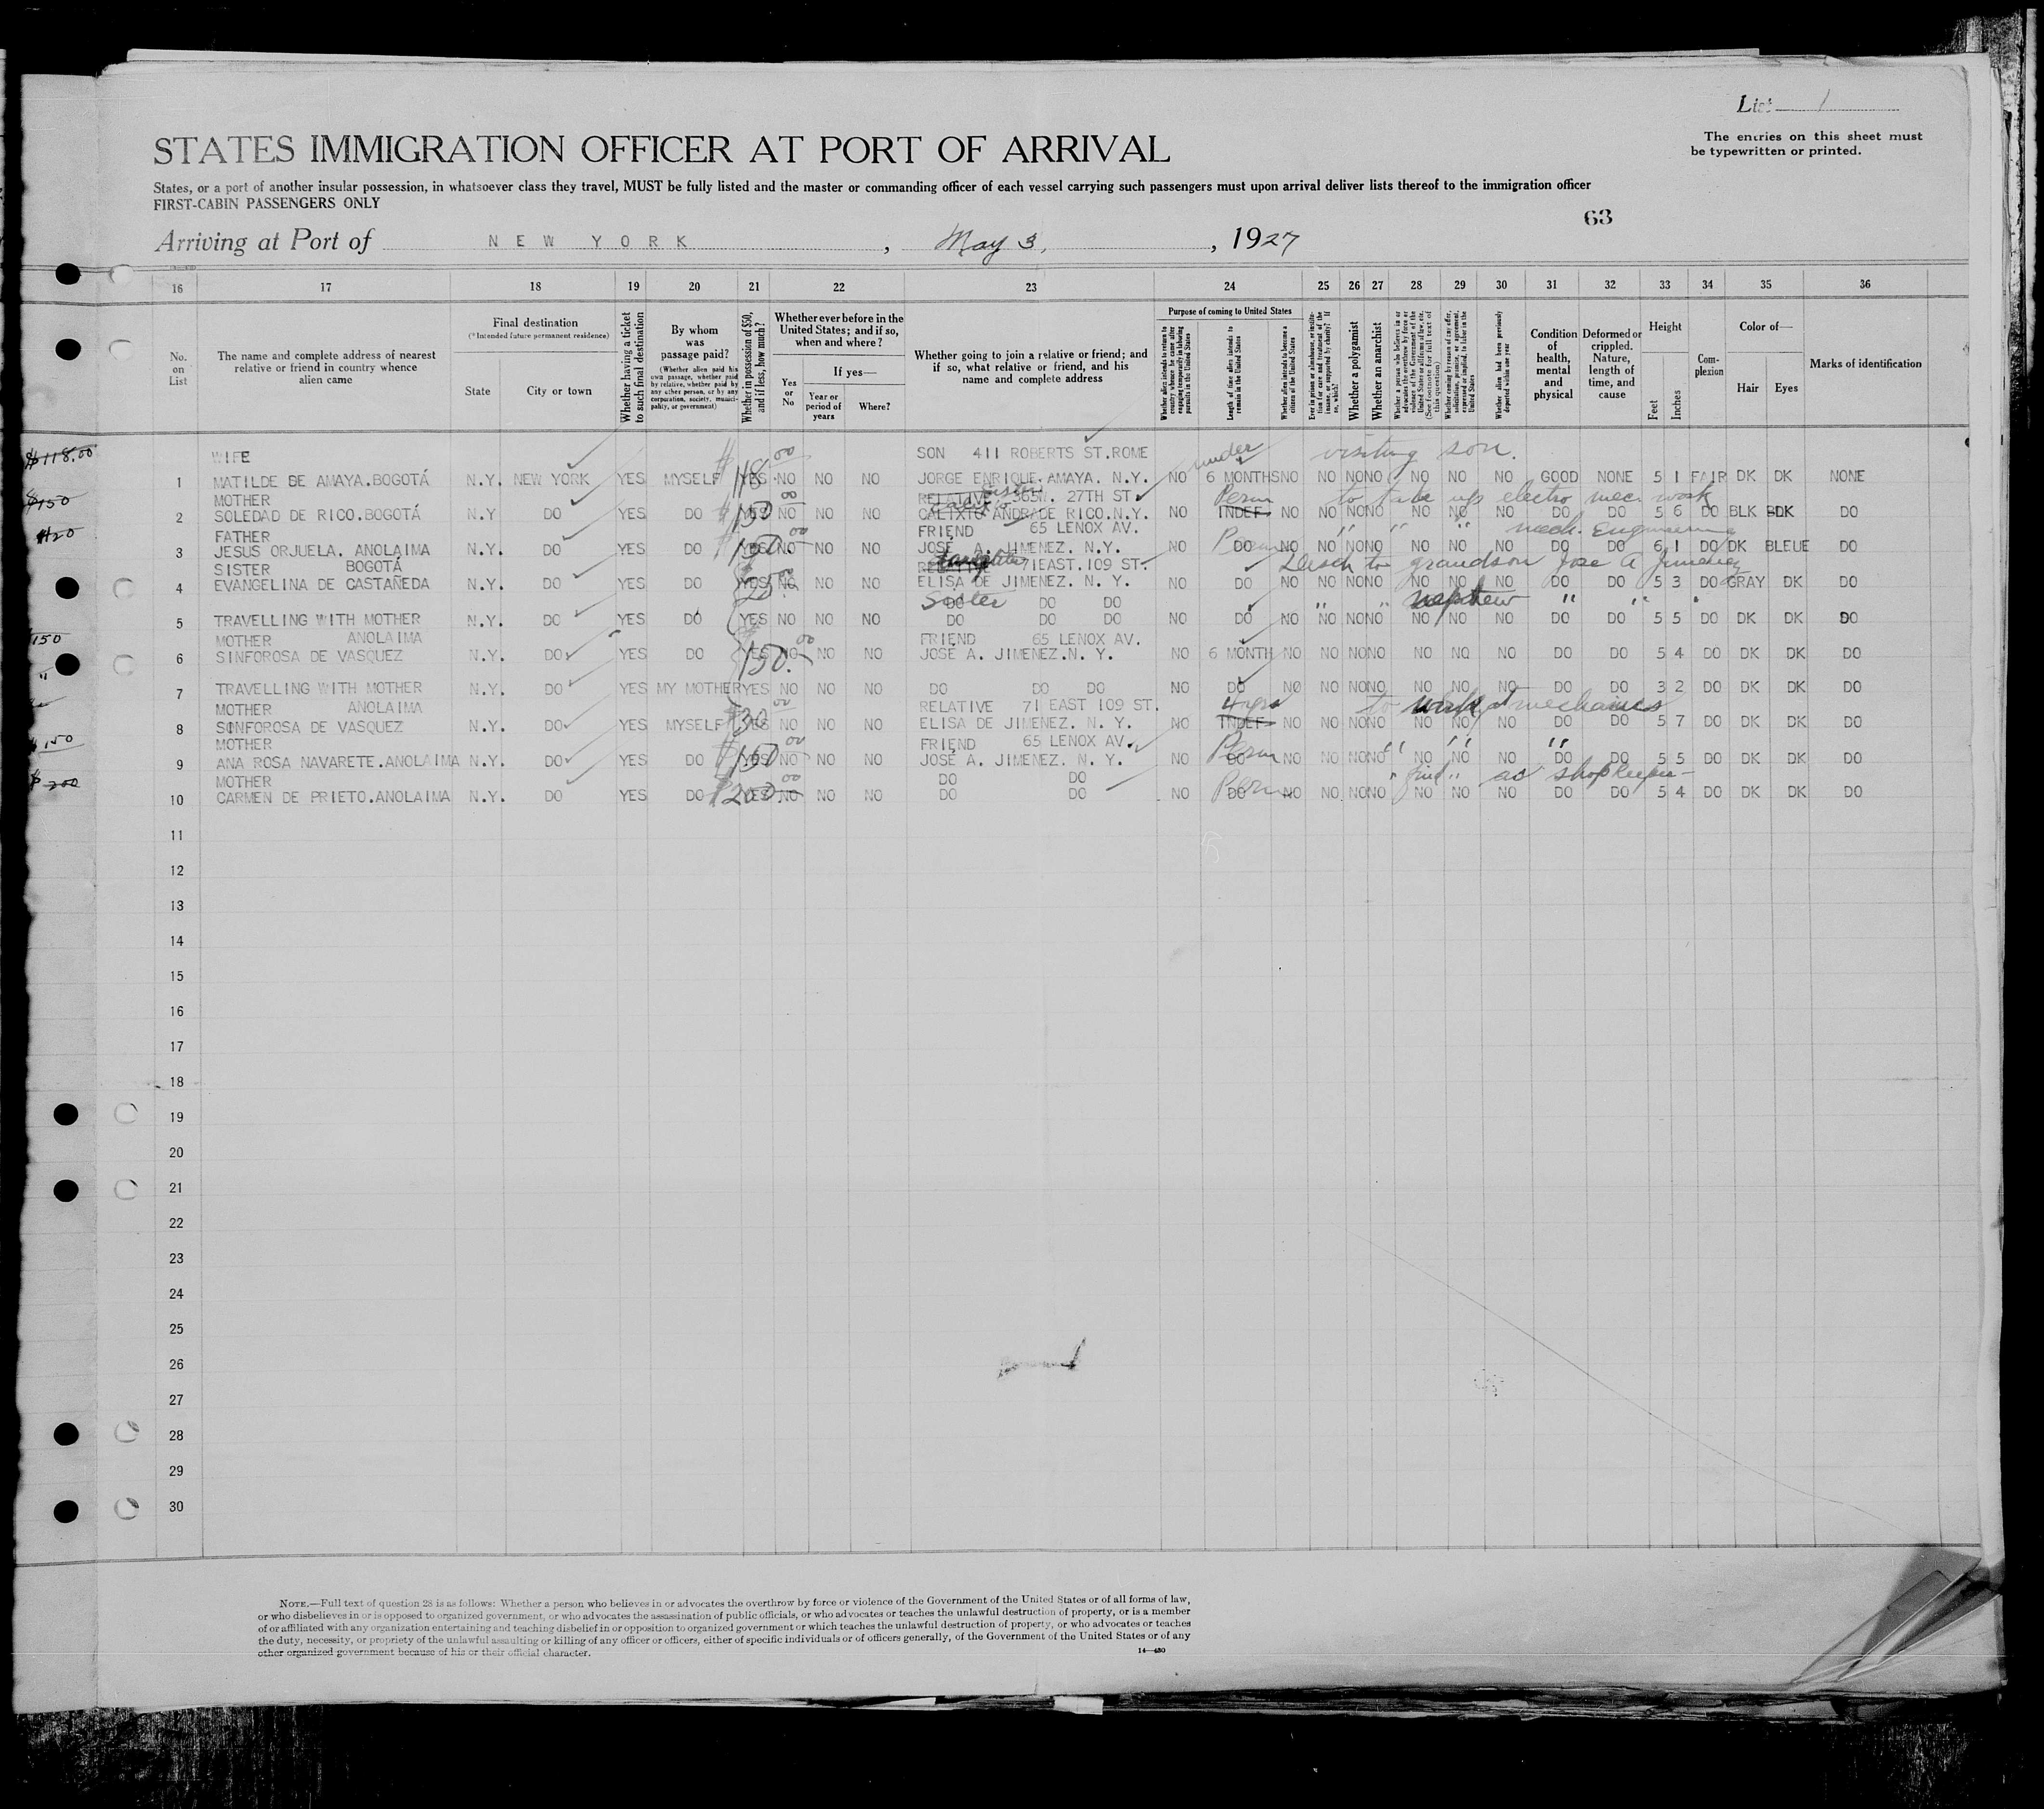 List 1
The entries on this sheet must
be typewritten or printed.
STATES IMMIGRATION OFFICER AT PORT OF ARRIVAL
States, or a port of another insular possession, in whatsoever class they travel, MUST be fully listed and the master or commanding officer of each vessel carrying such passengers must upon arrival deliver lists thereof to the immigration officer
FIRST-CABIN PASSENGERS ONLY
63
Arriving at Port of NEW YORK, May 3, 1927
16 17 18 19 20 21 22 23 24 25 26 27 28 29 30 31 32 33 34 35 36
No. on List
The name and complete address of nearest relative or friend in country whence alien came
Final destination
(*Intended future permanent residence)
State
City or town
Whether having a ticket to such final destination
By whom was passage paid?
(Whether alien paid his own passage, whether paid by relative, whether paid by any other person, or by any corporation, society, municipality, or government)
Whether in possession of $50, and if less, how much?
Whether ever before in the United States; and if so, when and where?
Yes or No
If yes—
Year or period of years
Where?
Whether going to join a relative or friend; and if so, what relative or friend, and his name and complete address
Purpose of coming to United States
Whether alien intends to return to country whence he came after engaging temporarily in laboring pursuits in the United States
Length of time alien intends to remain in the United States
Whether alien intends to become a citizen of the United States
Ever in prison or almshouse, or institution for care and treatment of the insane, or supported by charity? If so, which?
Whether a polygamist
Whether an anarchist
Whether a person who believes in or advocates the overthrow by force or violence of the Government of the United States or all forms of law, etc. (See footnote for full text of this question)
Whether coming by reason of any offer, solicitation, promise, or agreement, expressed or implied, to labor in the United States
Whether alien had been previously deported within one year
Condition of health, mental and physical
Deformed or crippled. Nature, length of time, and cause
Height
Feet
Inches
Complexion
Color of—
Hair
Eyes
Marks of identification
$118.00
WIFE SON 411 ROBERTS ST. ROME under visiting son.
1 MATILDE DE AMAYA. BOGOTÁ N.Y. NEW YORK YES MYSELF $118.00 YES NO NO NO JORGE ENRIQUE AMAYA. N.Y. NO 6 MONTHS NO NO NO NO NO NO NO GOOD NONE 5 1 FAIR DK DK NONE
$150
MOTHER RELATIVE 27TH ST. Perm to take up electro mec. work
2 SOLEDAD DE RICO. BOGOTÁ N.Y DO YES DO $150.00 YES NO NO NO CALIXTO ANDRADE RICO. N.Y. NO INDEF. NO NO NO NO NO NO NO DO DO 5 6 DO BLK BLK DO
$120
FATHER FRIEND 65 LENOX AV. " " " mech. Engineering
3 JESUS ORJUELA. ANOLAIMA N.Y. DO YES DO $150.00 YES NO NO NO JOSE A. JIMENEZ. N.Y. NO DO Perm NO NO NO NO NO NO NO DO DO 6 1 DO DK BLEUE DO
SISTER BOGOTÁ daughter RELATIVE 71 EAST. 109 ST. to grandson Jose A Jimenez
4 EVANGELINA DE CASTAÑEDA N.Y. DO YES DO YES NO NO NO ELISA DE JIMENEZ. N. Y. NO DO NO NO NO NO NO NO NO DO DO 5 3 DO GRAY DK DO
Sister DO DO DO " " nephew " " "
5 TRAVELLING WITH MOTHER N.Y. DO YES DO YES NO NO NO DO DO DO NO DO NO NO NO NO NO NO NO DO DO 5 5 DO DK DK DO
$150
MOTHER ANOLAIMA FRIEND 65 LENOX AV.
6 SINFOROSA DE VASQUEZ N.Y. DO YES DO $150.00 YES NO NO NO JOSE A. JIMENEZ. N. Y. NO 6 MONTH NO NO NO NO NO NO NO DO DO 5 4 DO DK DK DO
"
7 TRAVELLING WITH MOTHER N.Y. DO YES MY MOTHER YES NO NO NO DO DO DO NO DO NO NO NO NO NO NO NO DO DO 3 2 DO DK DK DO
MOTHER ANOLAIMA RELATIVE 71 EAST 109 ST. 4 yrs to work at mechanics
8 SINFOROSA DE VASQUEZ N.Y. DO YES MYSELF YES NO NO NO ELISA DE JIMENEZ. N. Y. NO INDEF. NO NO NO NO NO NO NO DO DO 5 7 DO DK DK DO
$150
MOTHER FRIEND 65 LENOX AV. Perm " " "
9 ANA ROSA NAVARETE. ANOLAIMA N.Y. DO YES DO $150.00 YES NO NO NO JOSE A. JIMENEZ. N. Y. NO DO NO NO NO NO NO NO NO DO DO 5 5 DO DK DK DO
$200
MOTHER DO DO Perm " find " as shopkeeper
10 CARMEN DE PRIETO. ANOLAIMA N.Y. DO YES DO $200.00 YES NO NO NO DO DO NO DO NO NO NO NO NO NO NO DO DO 5 4 DO DK DK DO
11
12
13
14
15
16
17
18
19
20
21
22
23
24
25
26
27
28
29
30
NOTE.—Full text of question 28 is as follows: Whether a person who believes in or advocates the overthrow by force or violence of the Government of the United States or of all forms of law,
or who disbelieves in or is opposed to organized government, or who advocates the assassination of public officials, or who advocates or teaches the unlawful destruction of property, or is a member
of or affiliated with any organization entertaining and teaching disbelief in or opposition to organized government or which teaches the unlawful destruction of property, or who advocates or teaches
the duty, necessity, or propriety of the unlawful assaulting or killing of any officer or officers, either of specific individuals or of officers generally, of the Government of the United States or of any
other organized government because of his or their official character.
14—430